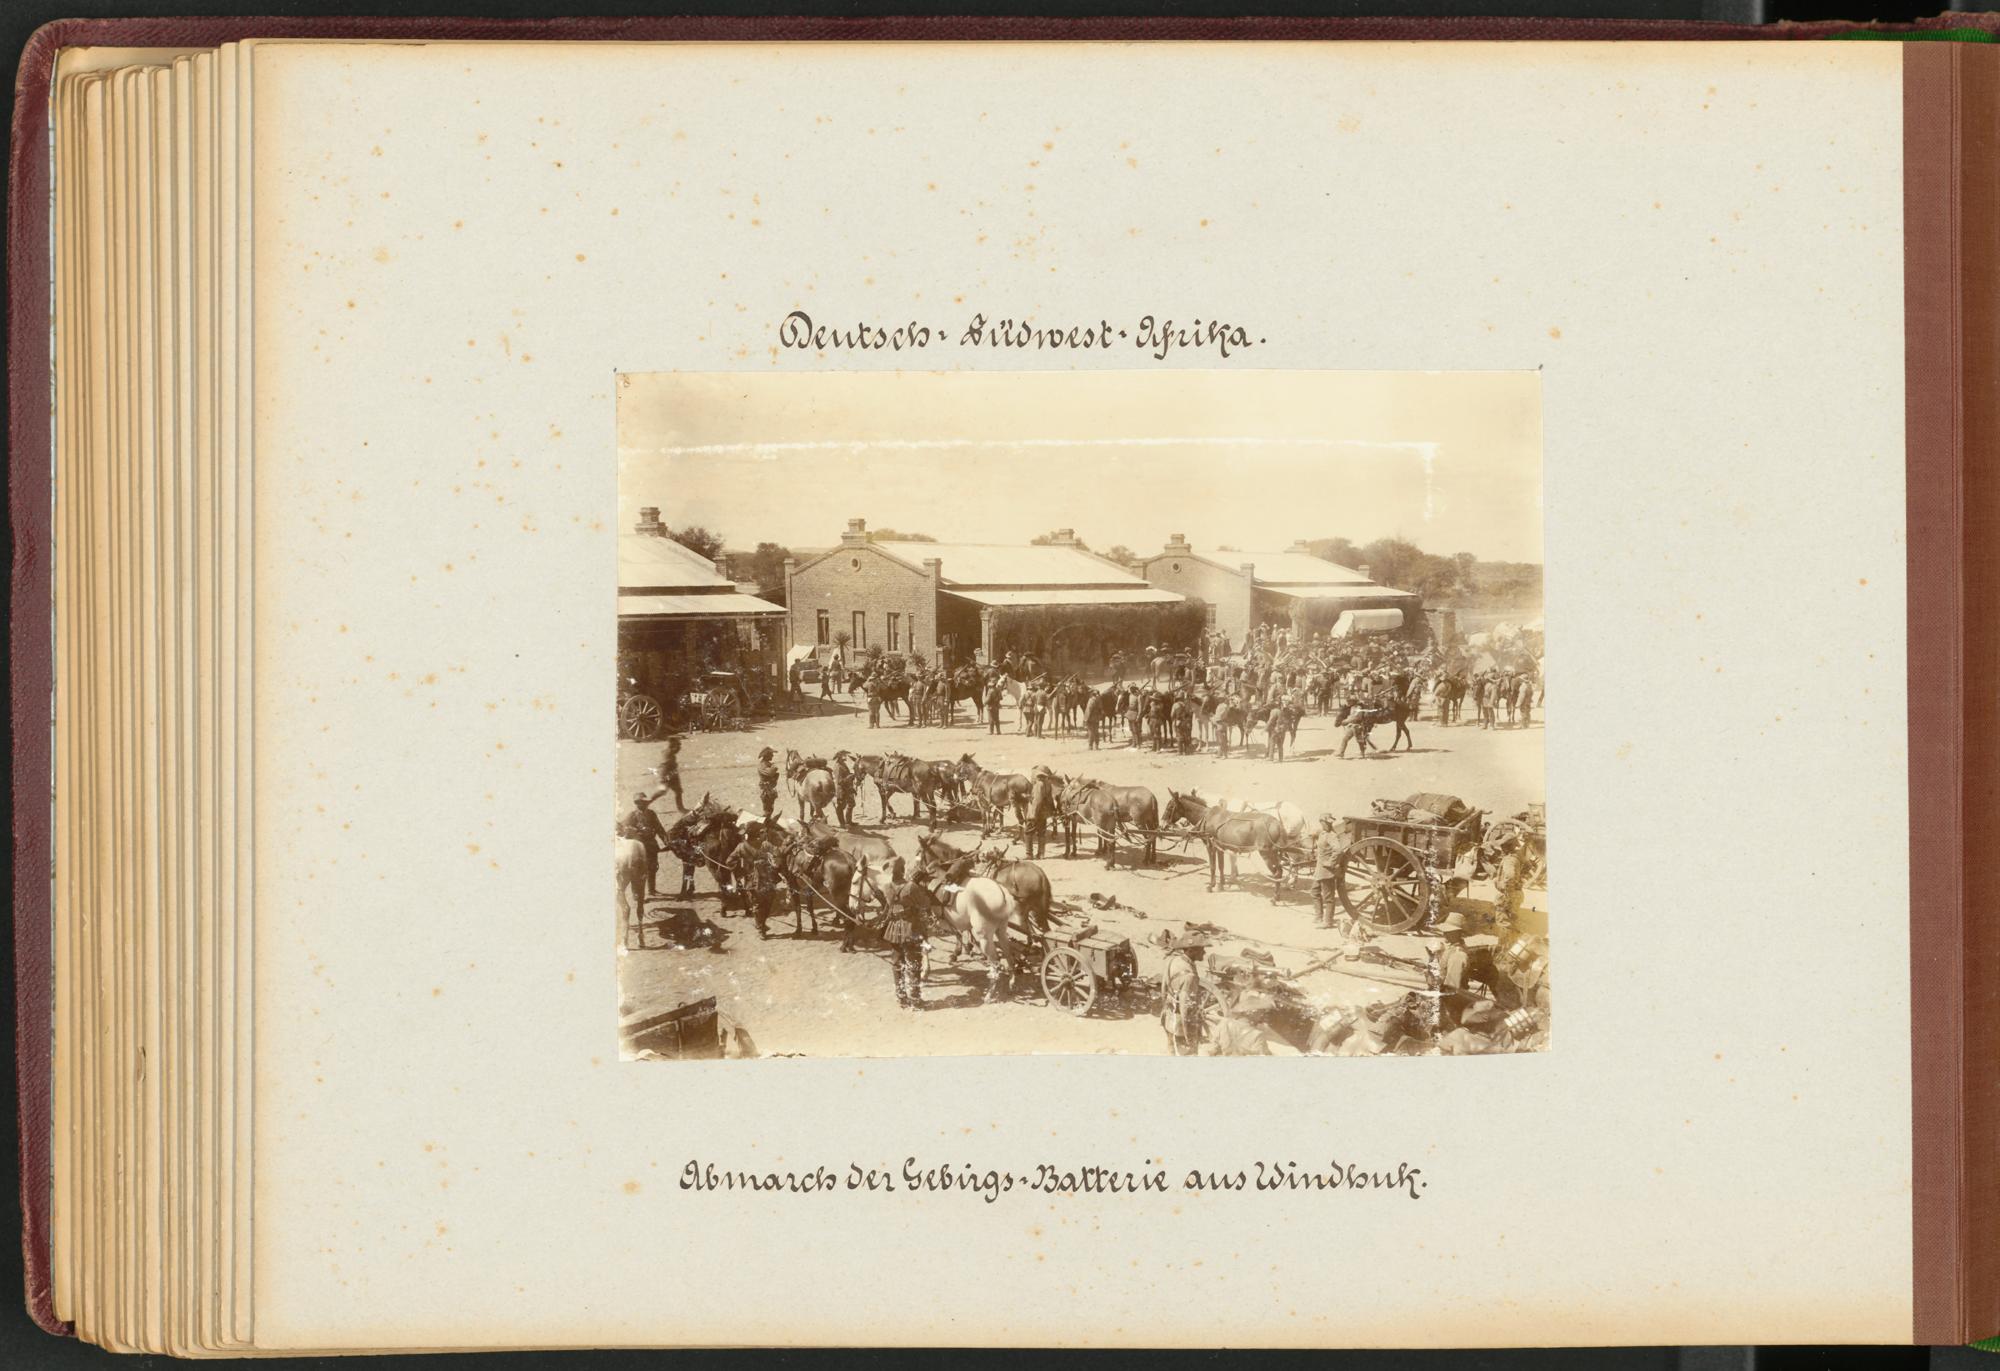 Deutsch-Südwest-Afrika.
8
Abmarch der Gebirgs-Batterie aus Windhuk.